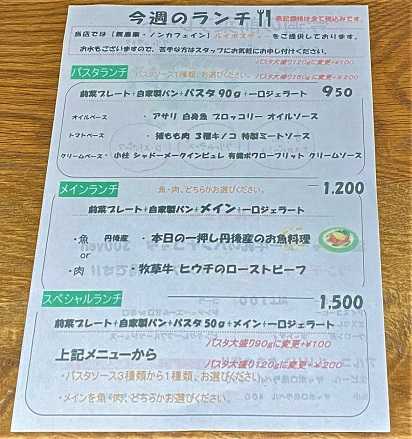 今週のランチ 表記価格は全て税込みです。
当店では【無農薬・ノンカフェイン】ルイボスティーをご提供しております。
お水もございますので、苦手な方はスタッフにお気軽にお申し付けください。
パスタ大盛り120gに変更+¥100
パスタランチ パスタソース1種類、お選びください。 パスタ大盛り150gに変更+¥200
前菜プレート+自家製パン+パスタ90g+一口ジェラート 950
オイルベース ・ アサリ 白身魚 ブロッコリー オイルソース
トマトベース ・ 鶏もも肉 3種キノコ 特製ミートソース
クリームベース・ 小柱 シャドークイーンピュレ 有機ポワローフリット クリームソース
メインランチ 魚・肉、どちらかお選びください。 1,200
前菜プレート+自家製パン+メイン+一口ジェラート
・魚 丹後産 ・本日の一押し丹後産のお魚料理
or
・肉 ・牧草牛 ヒウチのローストビーフ
スペシャルランチ 1,500
前菜プレート+自家製パン+パスタ50g+メイン+一口ジェラート
パスタ大盛り90gに変更+¥100
上記メニューから パスタ大盛り120gに変更+¥200
・パスタソース3種類から1種類、お選びください。
・メインを魚・肉、どちらかお選びください。